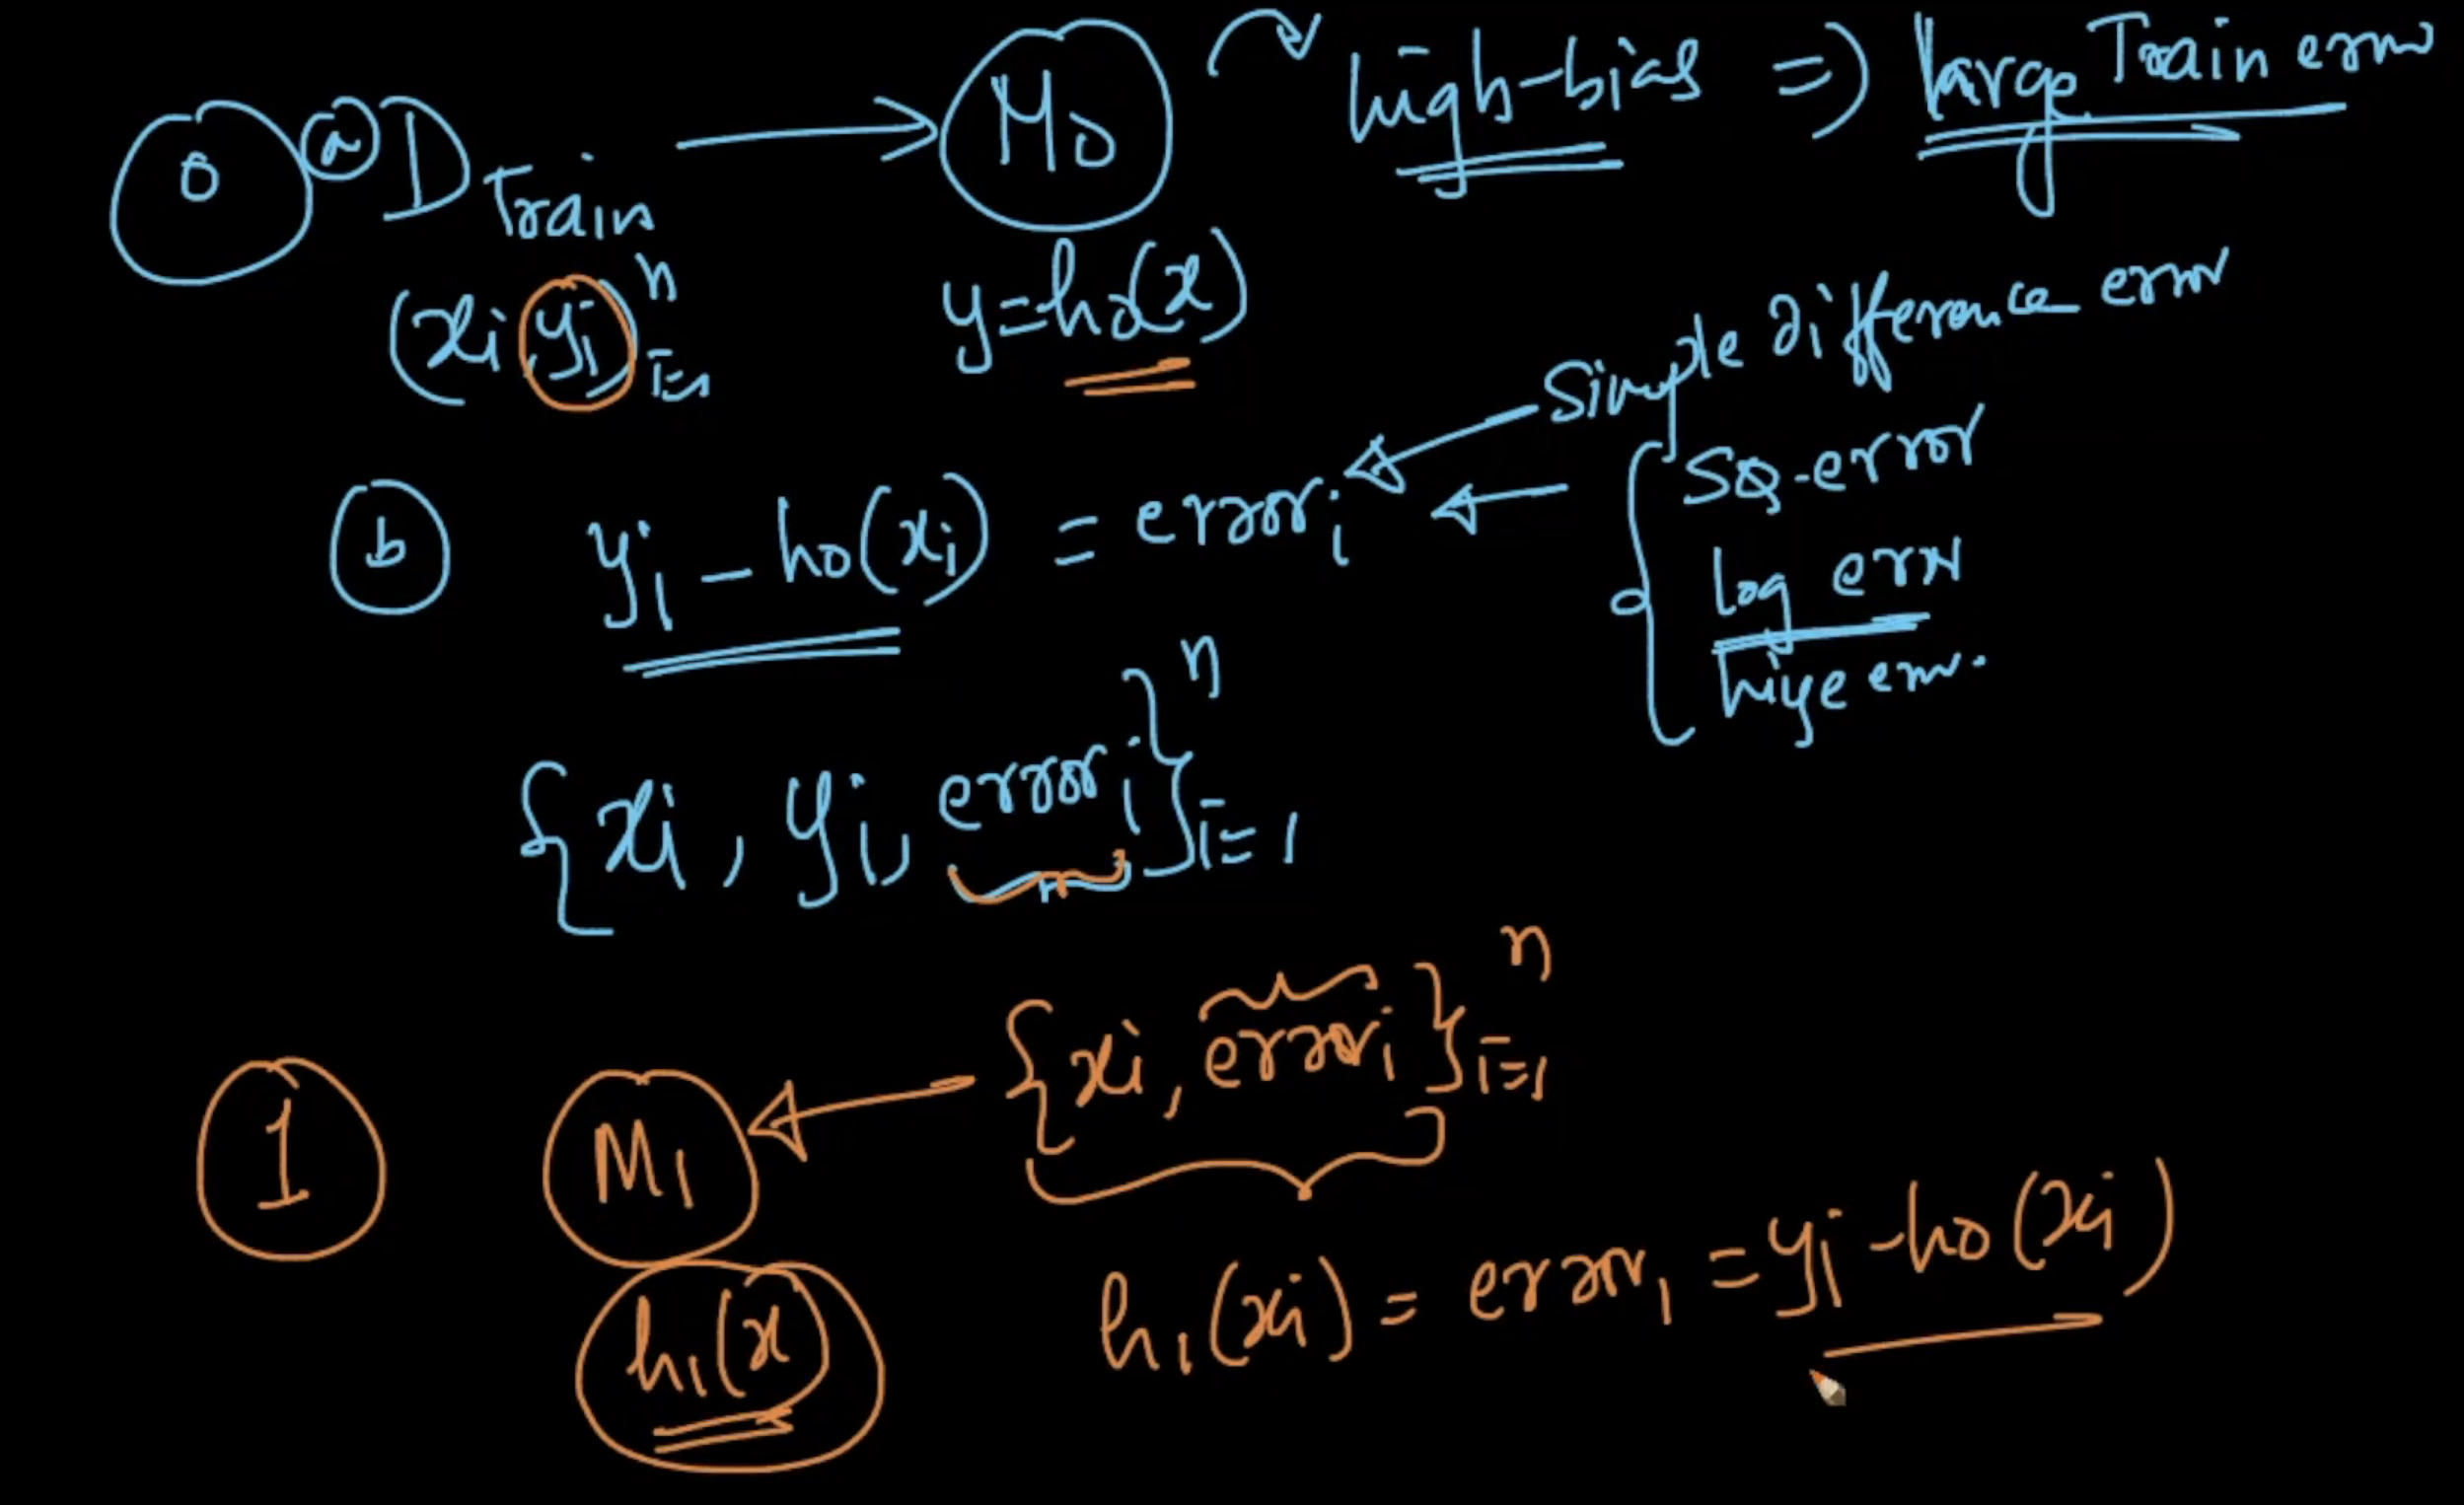 0 a D Train → M0 high-bias ⇒ large Train error
(xi, yi)ⁿ i=1 y=h0(x)
simple difference error
b yi - h0(xi) = errori
sq-error
log error
hinge err.
{xi, yi, errori}ⁿ i=1
1 M1 ← {xi, errori}ⁿ i=1
h1(x) h1(xi) = errori = yi - h0(xi)